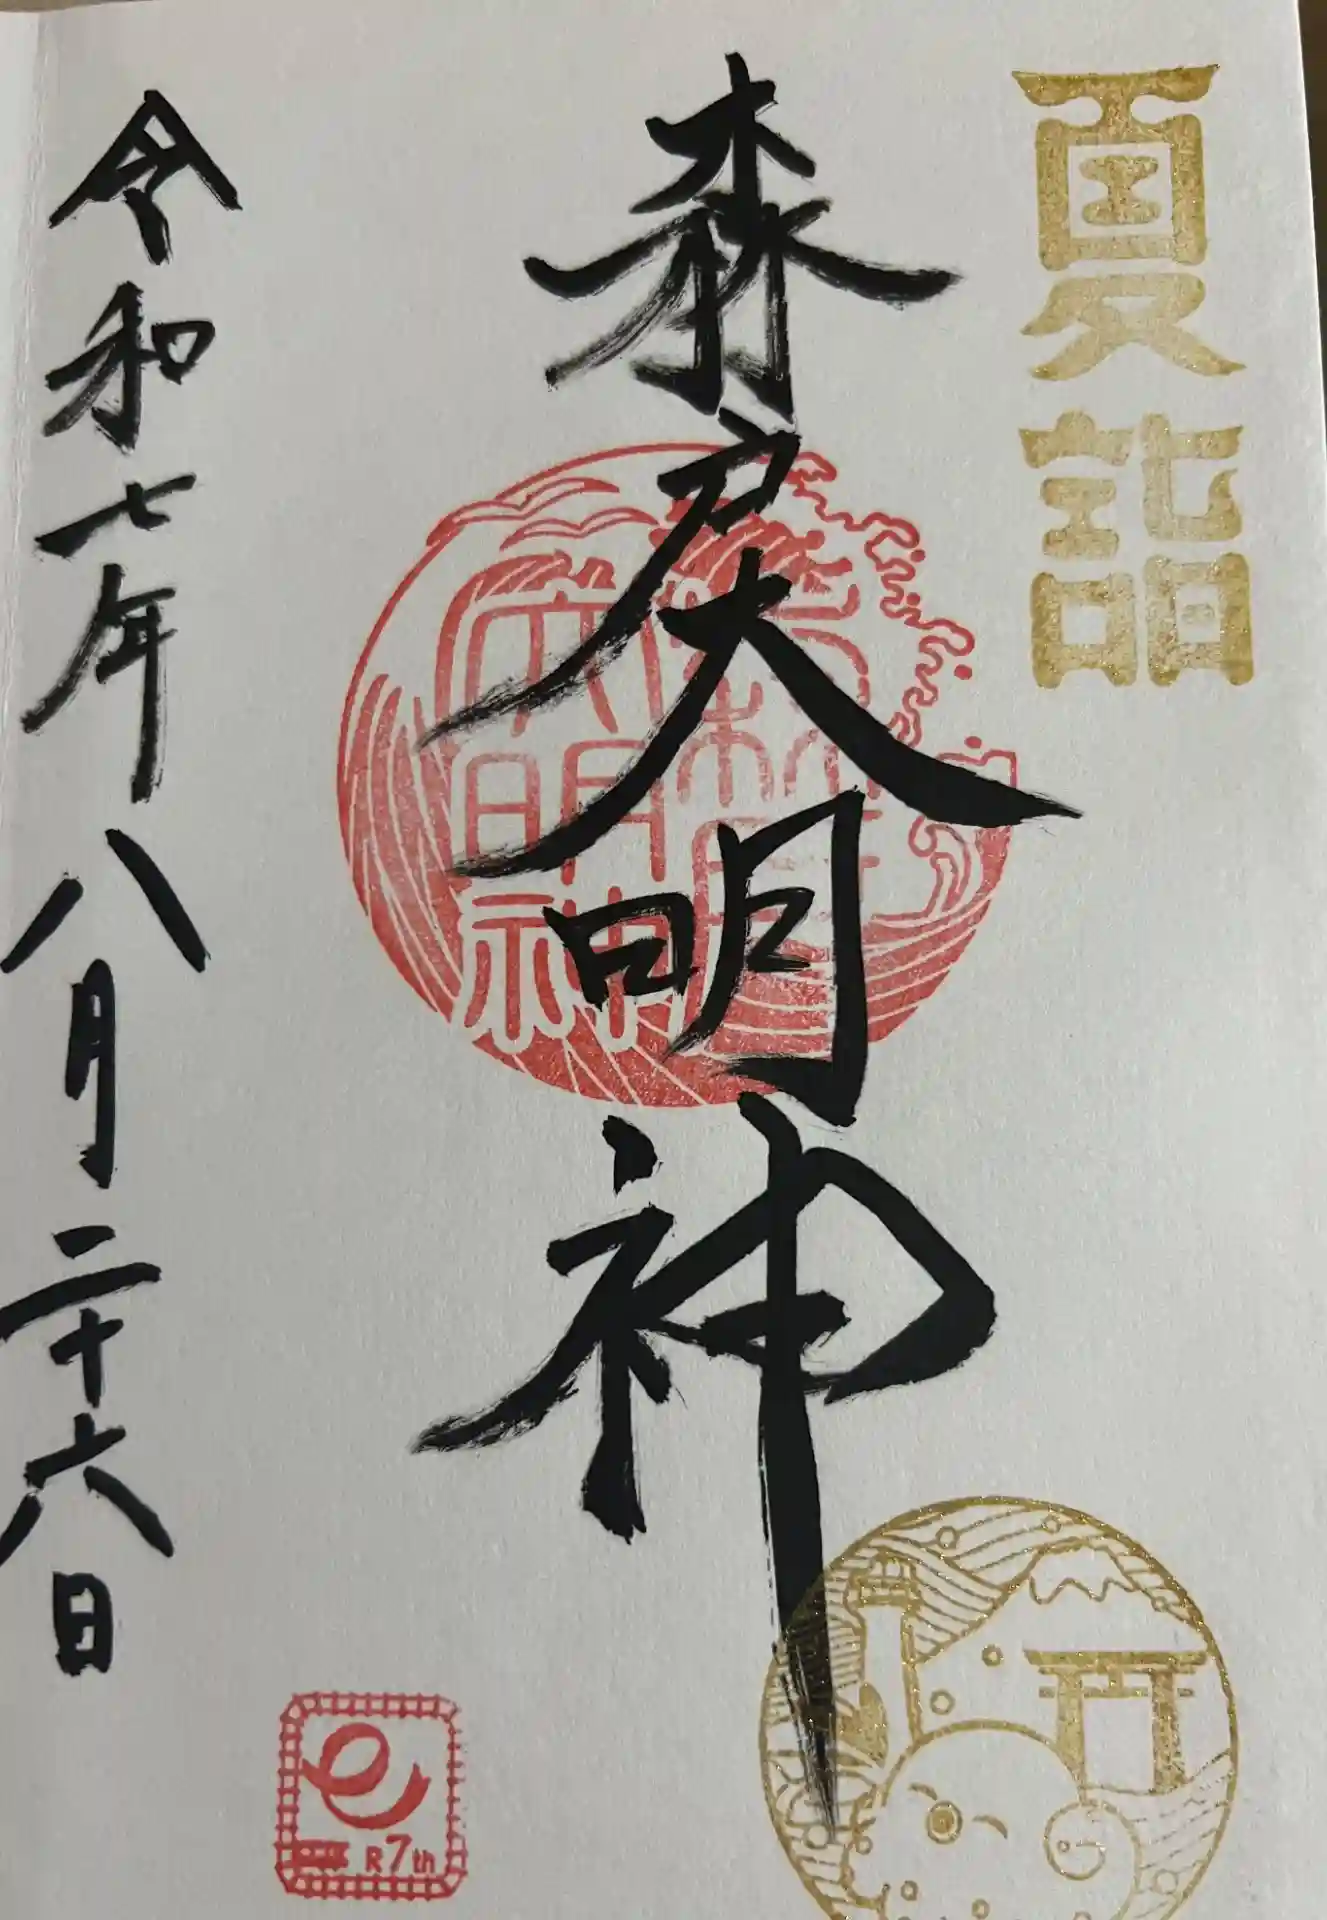 夏詣
森戸大明神
森戸大明神
令和七年八月二十六日
R7th